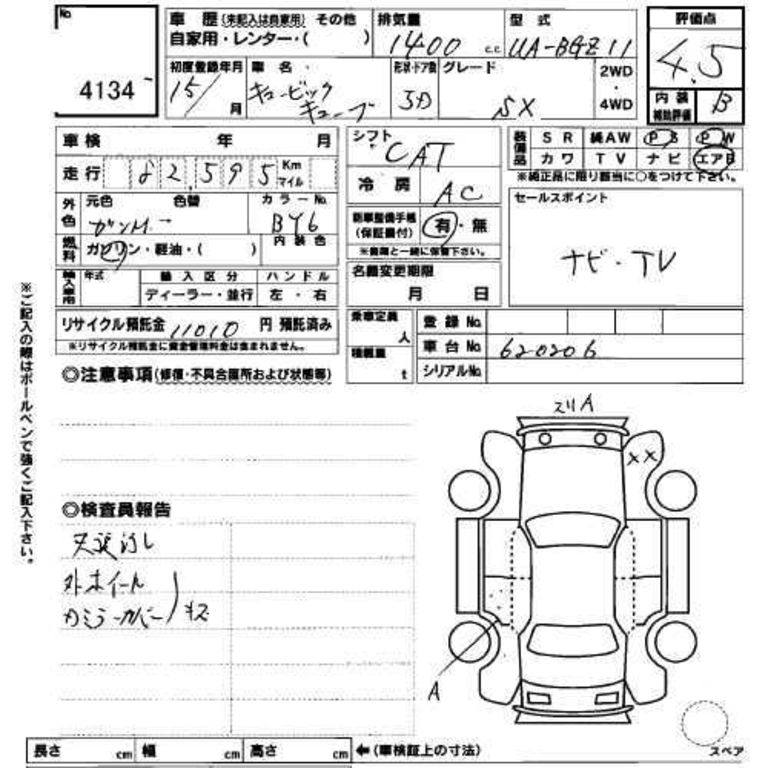 No. 4134
車歴(未記入は自家用) その他
自家用・レンター・( )
排気量 1400 c.c
型式 UA-BGZ11
評価点 4.5
内装補助評価 B
初度登録年月 15/ 月
車名・キュービック キューブ
形状・ドア数 5D
グレード SX
2WD・4WD
車検 年 月
走行 82,595 Km マイル
シフト CAT
冷房 AC
装備品 SR 純AW PS PW
カワ TV ナビ エアB
※純正品に限り該当に○をつけて下さい。
外色 元色 色替 カラーNo.
ガンM. BY6
燃料 ガソリン・軽油・( ) 内装色
新車整備手帳(保証書付) 有・無
※書類と一緒に保管下さい。
セールスポイント
ナビ・TV
輸入車用 年式 輸入区分 ハンドル
ディーラー・並行 左・右
名義変更期限
月 日
リサイクル預託金 11010 円 預託済み
※リサイクル預託金に資金管理料金は含まれません。
乗車定員 人
積載量 t
登録No.
車台No. 620206
シリアルNo.
◎注意事項(修復・不具合箇所および状態等)
※ご記入の際はボールペンで強くご記入下さい。
スリA
××
◎検査員報告
天張汚し
外ホイール
カミラーカバー キズ
A
スペア
長さ cm 幅 cm 高さ cm ←(車検証上の寸法)